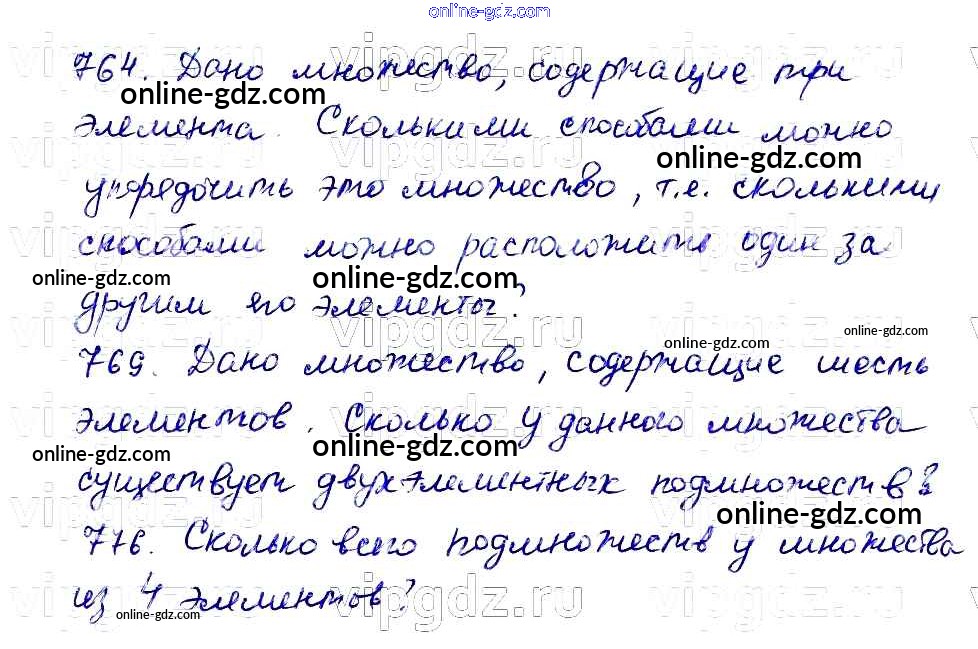 online-gdz.com
764. Дано множество, содержащие три
online-gdz.com
элемента. Сколькими способами можно
online-gdz.com
упорядочить это множество, т.е. сколькими
способами можно расположить один за
online-gdz.com online-gdz.com
другим его элементы?
online-gdz.com online-gdz.com
769. Дано множество, содержащие шесть
элементов. Сколько у данного множества
online-gdz.com online-gdz.com
существует двухэлементных подмножеств?
online-gdz.com
776. Сколько всего подмножеств у множества
из 4 элементов?
online-gdz.com
vipgdz.ru vipgdz.ru